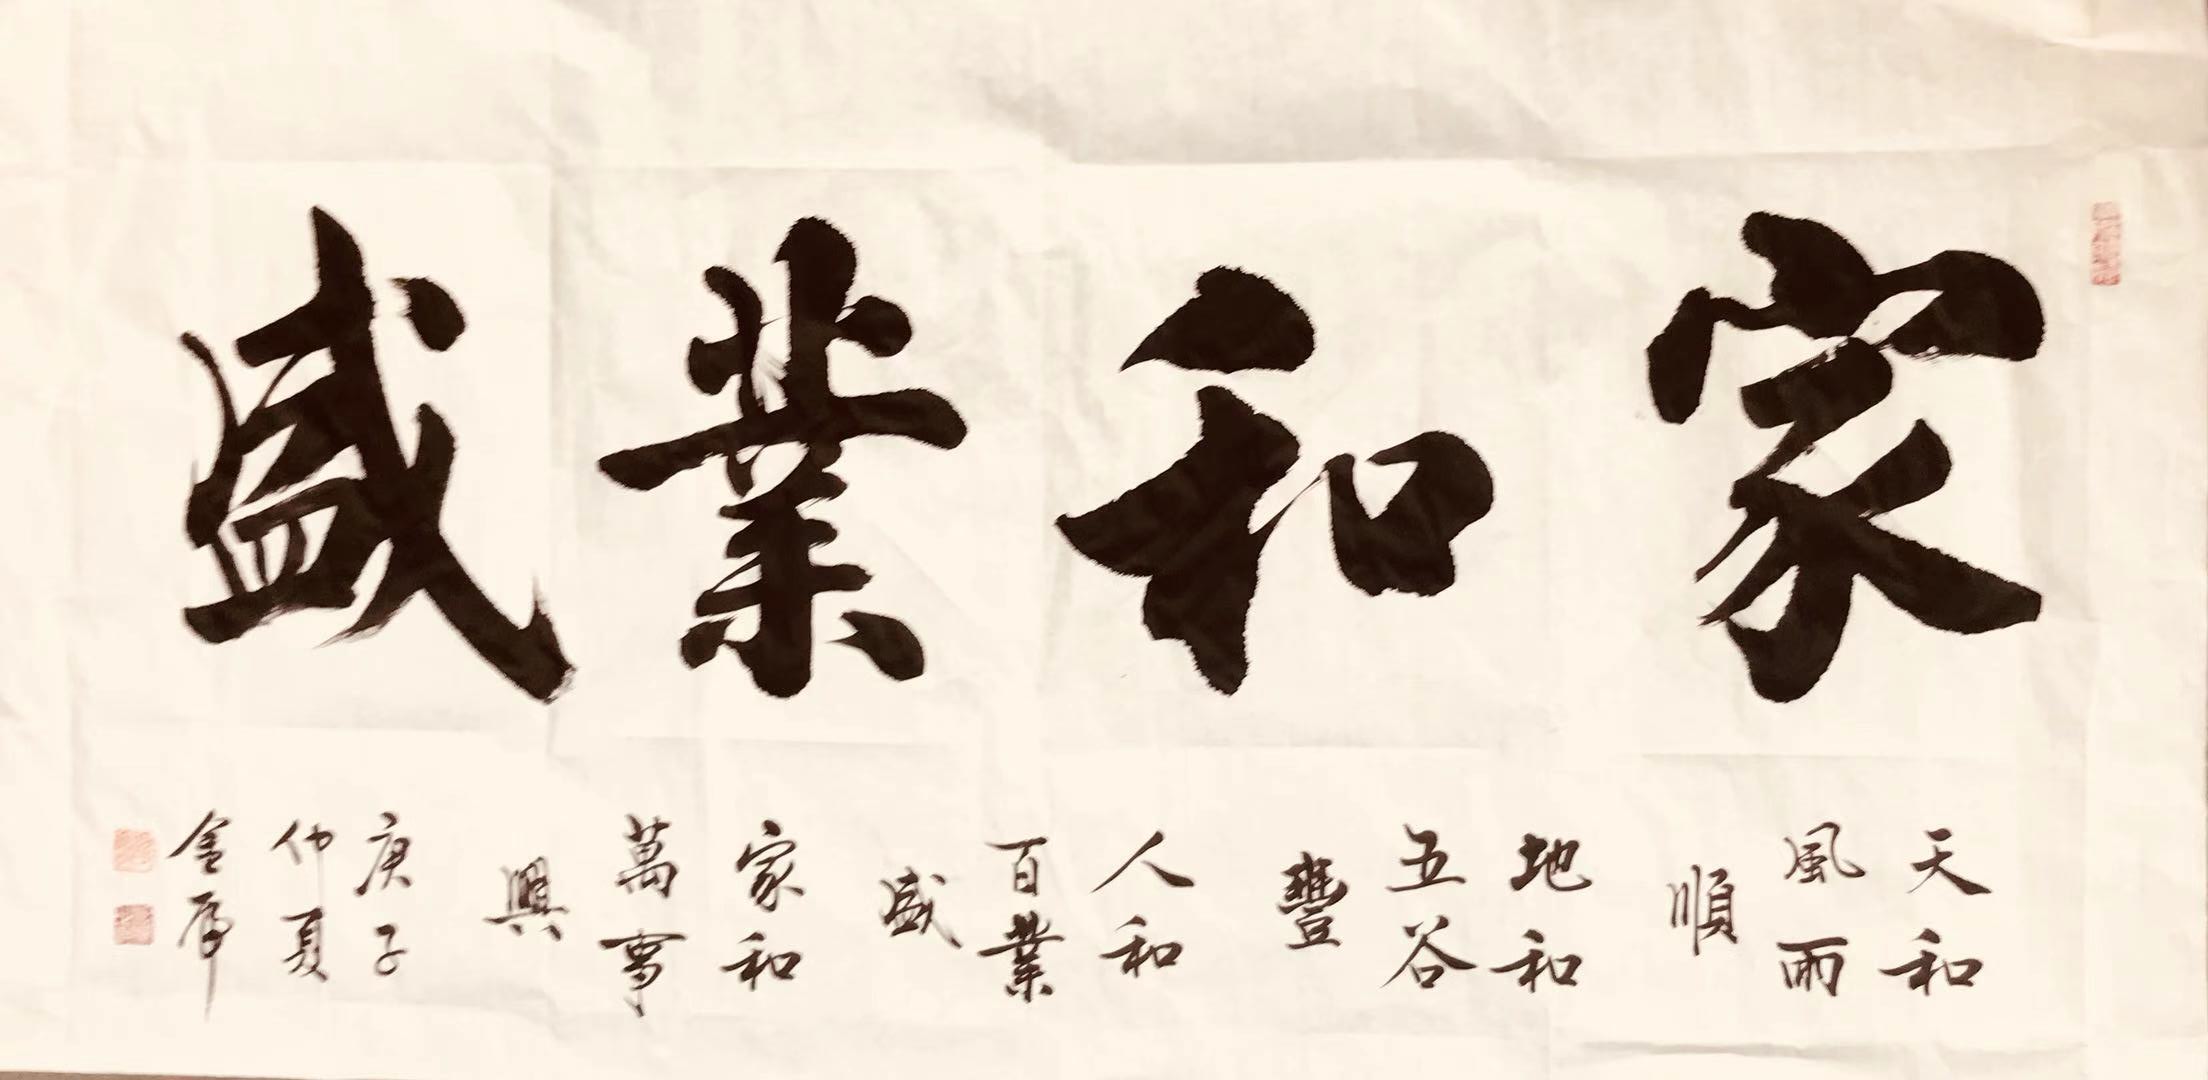 家和業盛
天和
風雨
順
地和
五谷
豐
人和
百業
盛
家和
萬事
興
庚子
仲夏